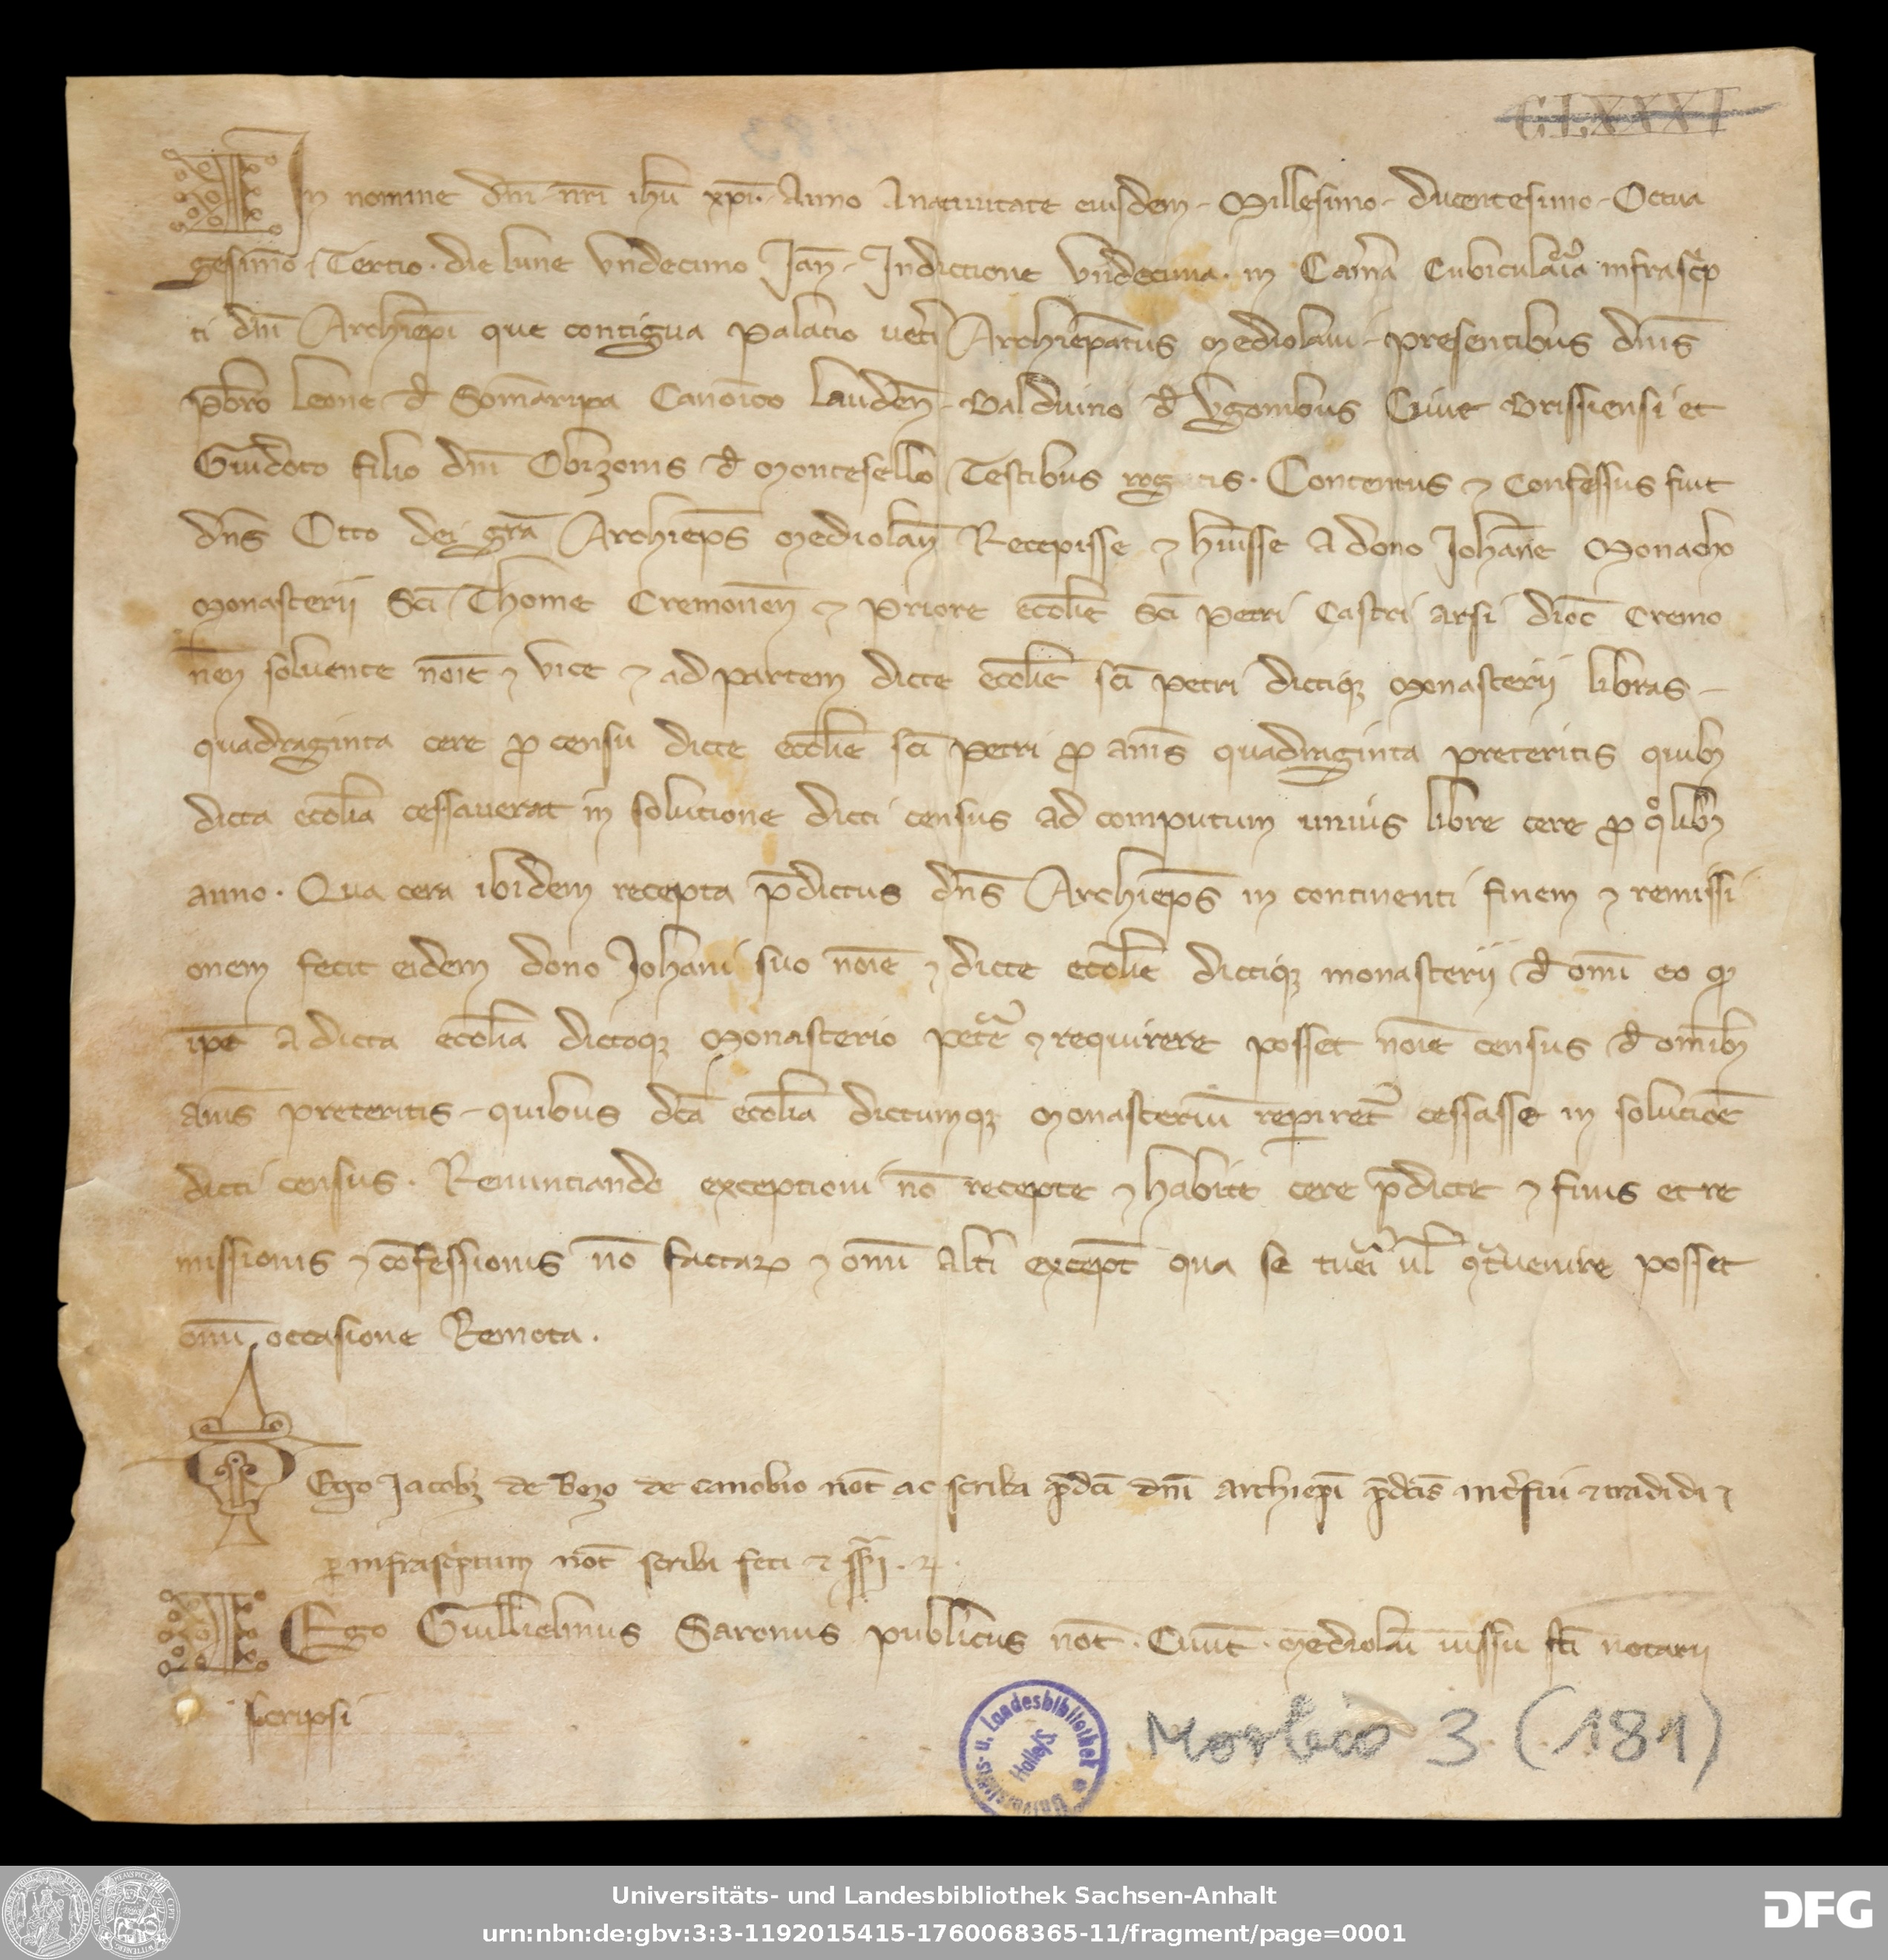 CLXXXI
In nomine dn̄i nr̄i ihū xp̄i. Anno A natiuitate eiusdem. Millesimo. ducentesimo. Octua
gesimo Tercio. die lune Vndecimo Jan̄. Indictione Vndecima. in Cam̄a Cubicularia infrascp̄
ti dn̄i Archiep̄i que contigua Palatio vet̄i Archiep̄atus Mediolani. presentibus dn̄is
p̄b̄ro Leone d̄ Som̄aripa Canoīco lauden̄. Balduino d̄ Vgonibus Ciue Brissiensi et
Guidoto filio dn̄i Obizonis d̄ Montesello Testibus rogatis. Contentus ⁊ Confessus fuit
dn̄s Otto dei gr̄a Archiep̄s Mediolan̄ Recepisse ⁊ h̄uisse A dono Joh̄ane Monacho
Monasterij Sc̄i Thome Cremonen̄ ⁊ Priore eccl̄ie Sc̄i Petri Castri arsi dioc̄ Cremo
nen̄ soluente noīe ⁊ vice ⁊ ad partem dicte eccl̄ie sc̄i petri dictiqꝫ Monasterij libras
quadraginta cere ꝓ censu dicte eccl̄ie sc̄i petri ꝓ an̄is quadraginta preteritis quibꝫ
dicta eccl̄ia cessauerat in solutione dicti census ad computum unius libre cere ꝓ qͦlibꝫ
anno. Qua cera ibidem recepta p̄dictus dn̄s Archiep̄s in continenti finem ⁊ remissi
onem fecit eidem dono Johani suo noīe ⁊ dicte eccl̄ie dictiqꝫ monasterij d̄ om̄i eo qꝫ
ip̄e A dicta eccl̄ia dictoqꝫ Monasterio peter̄ ⁊ requirere posset noīe census d̄ om̄ibꝫ
an̄is preteritis. quibus dc̄a eccl̄ia dictumqꝫ Monasteriū reꝑiret̄ cessasse in solutiōe
dicti census. Renuntiando exceptioni nō recepte ⁊ habite cere p̄dicte ⁊ finis et re
missionis ⁊ cōfessionis nō factaꝝ ⁊ om̄i alt̄i except̄ qua se tueri ul̄ ꝯt̄uenire posset
om̄i occasione Remota.
Ego Jacobꝫ de Bozo de canobio not̄ ac scriba p̄dc̄i dn̄i archiep̄i p̄dc̄is int̄fui ⁊ tradidi ⁊
ꝑ infrascp̄tum not̄ scribi feci ⁊ ss̄.
Ego Guillielmus Saronus publicus not̄. Ciuit̄. Mediolan̄ iussu sc̄i notarij
scripsi
Universitäts- u. Landesbibliothek
Halle/S.
Morbio 3 (181)
Universitäts- und Landesbibliothek Sachsen-Anhalt
urn:nbn:de:gbv:3:3-1192015415-1760068365-11/fragment/page=0001
DFG